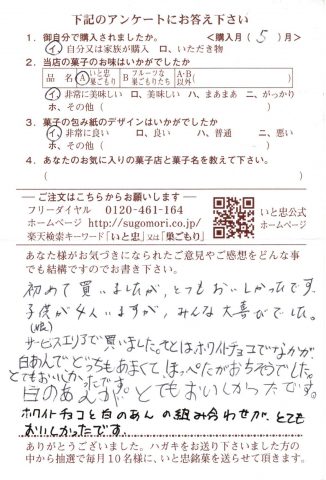 下記のアンケートにお答え下さい
1. 御自分で購入されましたか。 <購入月( 5 )月>
イ、自分又は家族が購入 ロ、いただき物
2. 当店の菓子のお味はいかがでしたか
品 名 A いと忠巣ごもり B フルーツな巣ごもり A・B以外( )
イ、非常に美味しい ロ、美味しい ハ、まあまあ ニ、がっかり
ホ、その他( )
3. 菓子の包み紙のデザインはいかがでしたか
イ、非常に良い ロ、良い ハ、普通 ニ、悪い
ホ、その他( )
4. あなたのお気に入りの菓子店と菓子名を教えて下さい。
( )
ご注文はこちらからお願いします
フリーダイヤル 0120-461-164
ホームページ http://sugomori.co.jp/
楽天検索キーワード「いと忠」又は「巣ごもり」
いと忠公式
ホームページ
あなた様がお気づきになられたご意見やご感想をどんな事
でも結構ですのでお書き下さい。
初めて買いましたが、とってもおいしかったです。
子供が4人いますが、みんな大喜びでした。
サービスエリアで買いました。そとはホワイトチョコでなかが
白あんでどっちもあまくてほっぺたがおちそうでした。
とてもおいしかったです。
白のあんが、とてもおいしかったです。
ホワイトチョコと白のあんの組み合わせが、とても
おいしかったです。
ありがとうございました。ハガキをお送り下さいました方の
中から抽選で毎月10名様に、いと忠銘菓を送らせて頂きます。